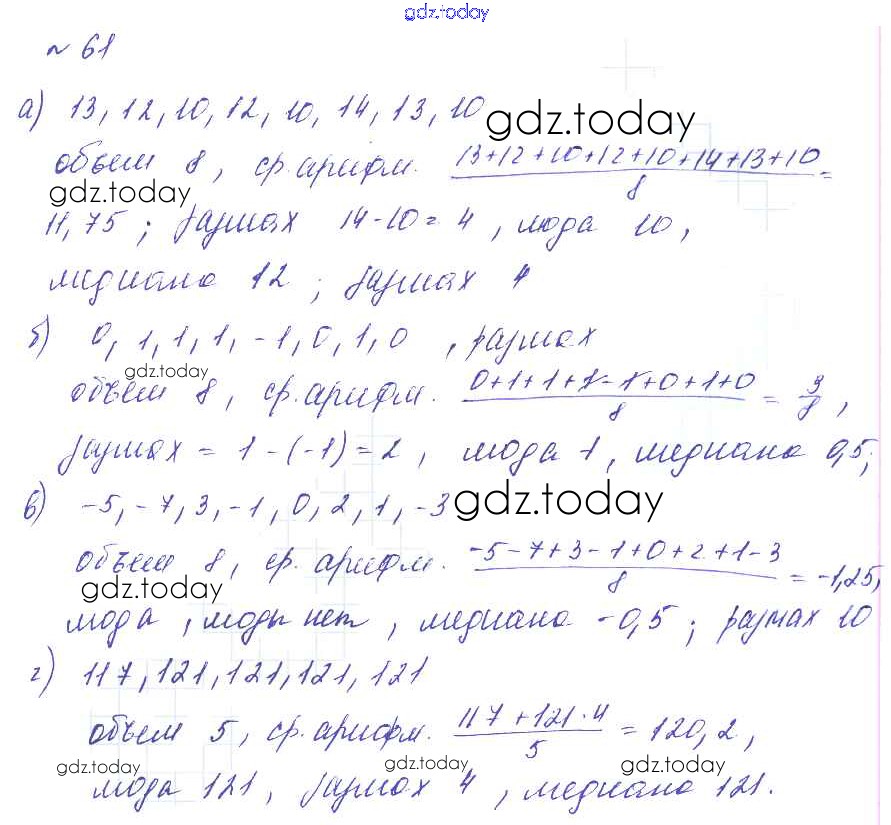 gdz.today
№ 61
а) 13, 12, 10, 12, 10, 14, 13, 10
gdz.today
объем 8, ср. арифм. (13+12+10+12+10+14+13+10)/8 =
gdz.today
11,75; размах 14-10=4, мода 10,
медиана 12; размах 4
б) 0, 1, 1, 1, -1, 0, 1, 0, размах
gdz.today
объем 8, ср. арифм. (0+1+1+1-1+0+1+0)/8 = 3/8,
размах = 1-(-1)=2, мода 1, медиана 0,5;
в) -5, -7, 3, -1, 0, 2, 1, -3
gdz.today
объем 8, ср. арифм. (-5-7+3-1+0+2+1-3)/8 = -1,25,
gdz.today
мода, моды нет, медиана -0,5; размах 10
г) 117, 121, 121, 121, 121
объем 5, ср. арифм. (117+121·4)/5 = 120,2,
gdz.today gdz.today gdz.today
мода 121, размах 4, медиана 121.